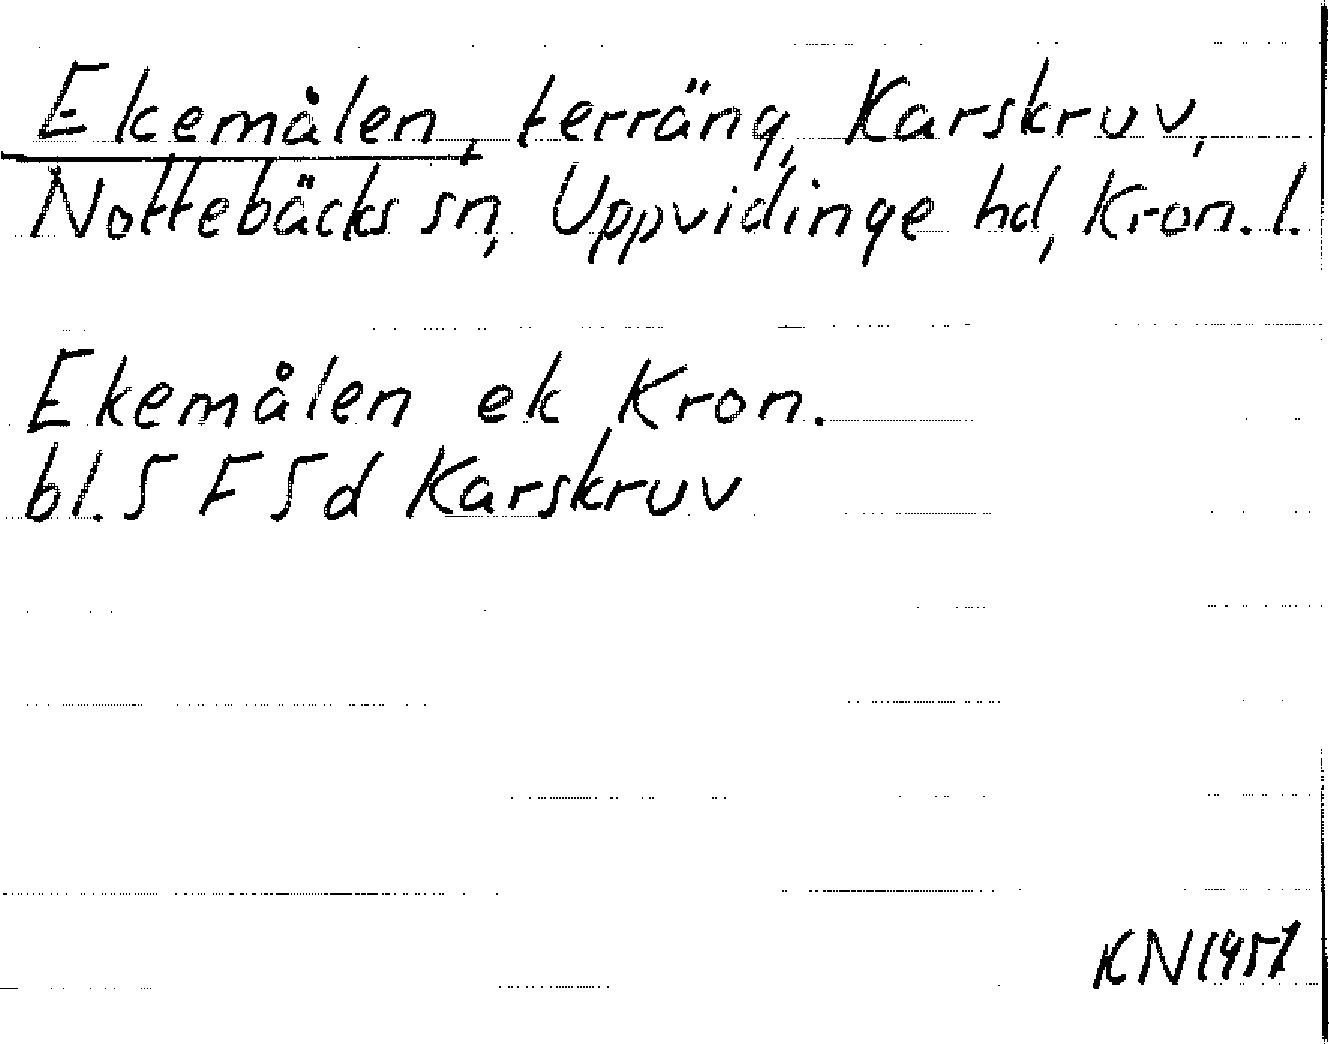 Ekemålen, terräng, Karskruv,
Nottebäcks sn, Uppvidinge hd, Kron. l.
Ekemålen ek Kron.
bl. 5 F 5 d Karskruv
KN 1957